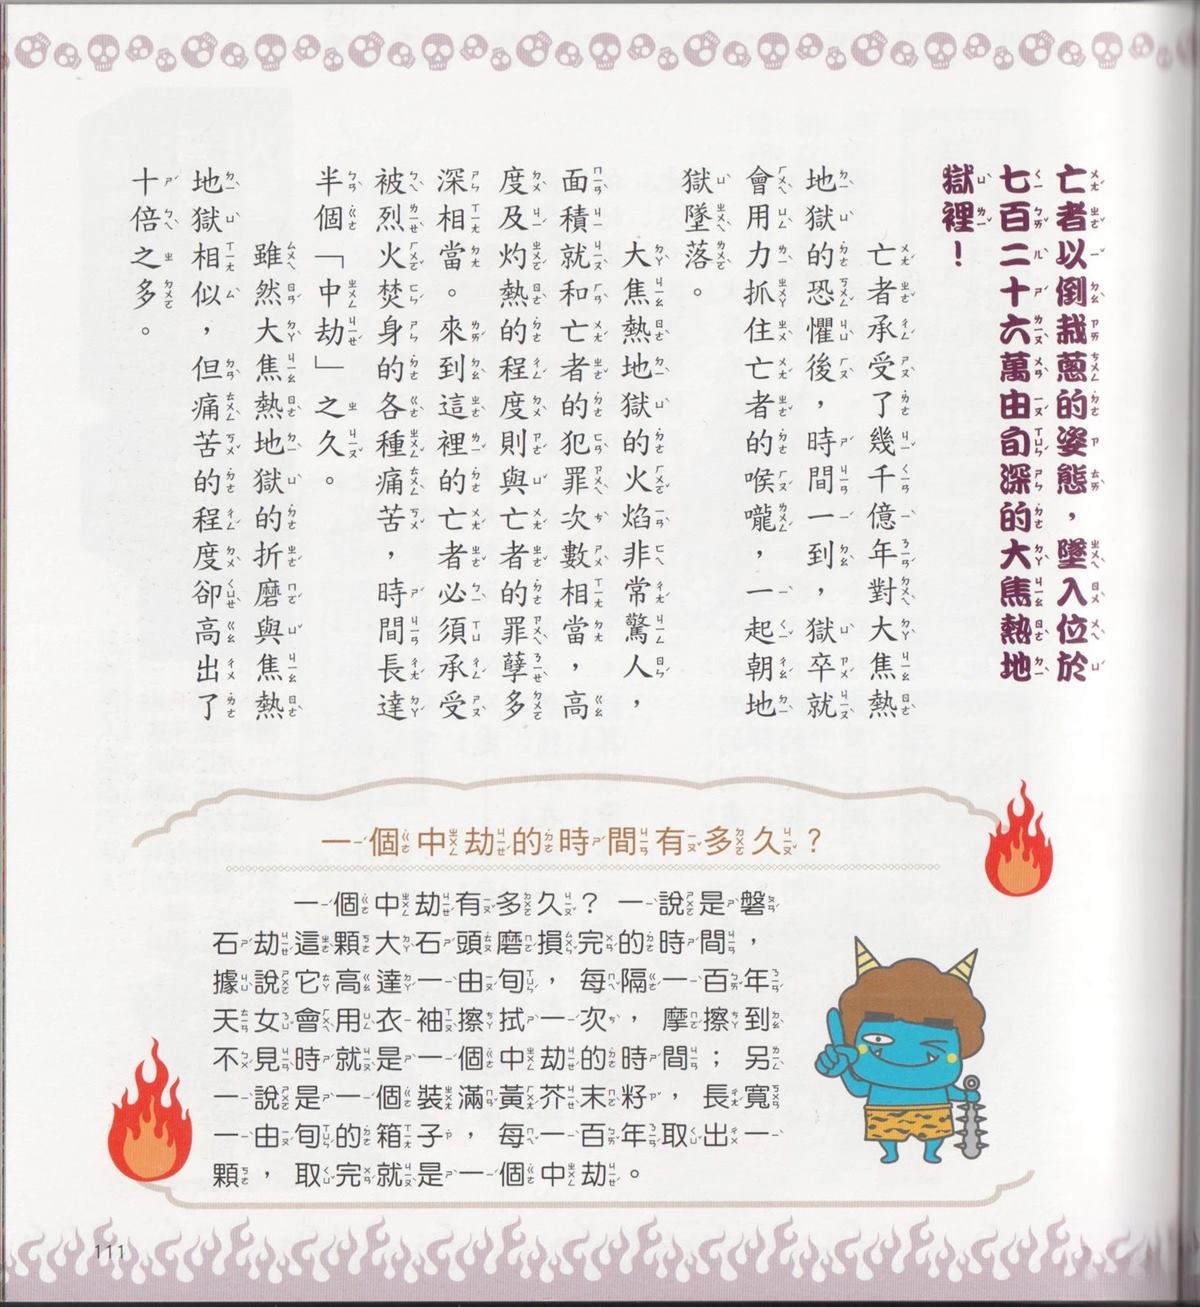 亡者以倒栽蔥的姿態，墜入位於
七百二十六萬由旬深的大焦熱地
獄裡！
亡者承受了幾千億年對大焦熱
地獄的恐懼後，時間一到，獄卒就
會用力抓住亡者的喉嚨，一起朝地
獄墜落。
大焦熱地獄的火焰非常驚人，
面積就和亡者的犯罪次數相當，高
度及灼熱的程度則與亡者的罪孽多
深相當。來到這裡的亡者必須承受
被烈火焚身的各種痛苦，時間長達
半個「中劫」之久。
雖然大焦熱地獄的折磨與焦熱
地獄相似，但痛苦的程度卻高出了
十倍之多。
一個中劫的時間有多久？
一個中劫有多久？一說是磐
石劫這顆大石頭磨損完的時間，
據說它高達一由旬，每隔一百年
天女會用衣袖擦拭一次，摩擦到
不見時就是一個中劫的時間；另
一說是一個裝滿黃芥末籽，長寬
一由旬的箱子，每一百年取出一
顆，取完就是一個中劫。
111